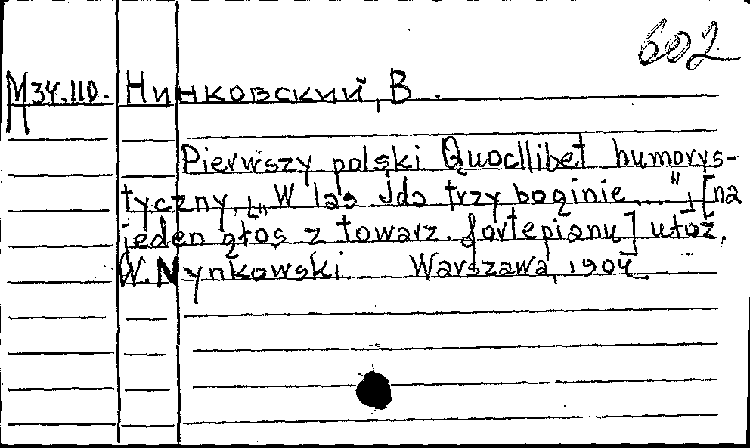 602
M 34.110. Нинковский, В.
Pierwszy polski Quodlibet humorys-
tyczny „W las ida trzy boginie...", [na
jeden głos z towarz. fortepianu] ułoż.
W. Nynkowski Warszawa, 1904.